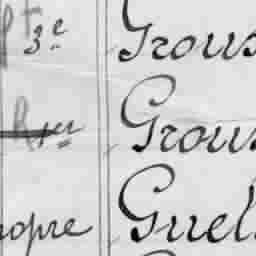 3e Grous
Grous
opre Guel